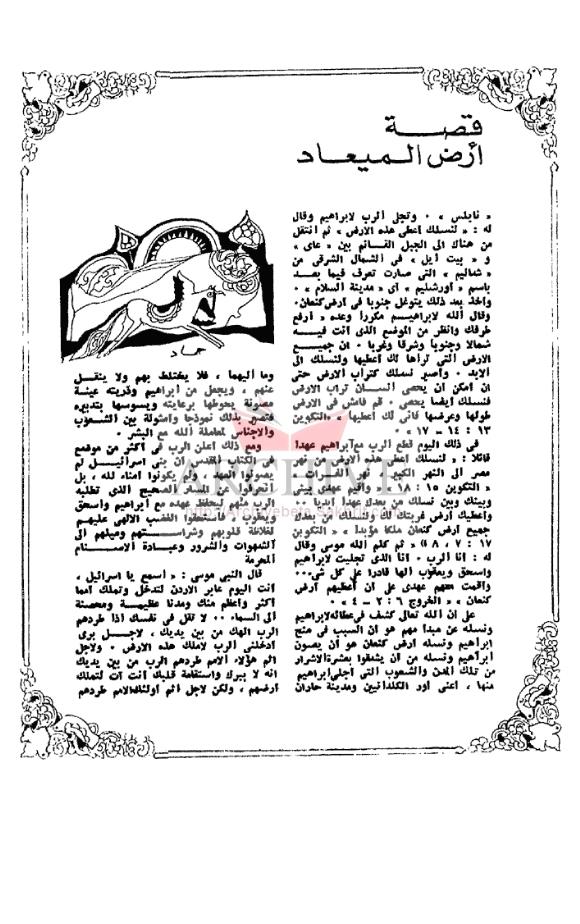 قصة
أرض الميعاد
« نابلس » ٠ وتجلى الرب لابراهيم وقال
له : « لنسلك اعطى هذه الارض » ثم انتقل
من هناك الى الجبل القائم بين « عاى »
و « بيت ايل » فى الشمال الشرقى من
« شاليم » التى صارت تعرف فيما بعد
باسم « اورشليم » اى « مدينة السلام » ٠
واخذ بعد ذلك يتوغل جنوبا فى ارض كنعان٠
وقال الله لابراهيم مكررا وعده « ارفع
طرفك وانظر من الموضع الذى انت فيه
شمالا وجنوبا وشرقا وغربا ٠ ان جميع
الارض التى تراها لك اعطيها ولنسلك الى
الابد ٠ وأصير نسلك كتراب الارض حتى
ان امكن ان يحصى انسان تراب الارض
فنسلك ايضا يحصى ٠ قم فامش فى الارض
طولها وعرضها فانى لك أعطيها » «التكوين
١٣ : ١٤ – ١٧ » ٠
فى ذلك اليوم قطع الرب مع ابراهيم عهدا
قائلا : « لنسلك اعطى هذه الارض من نهر
مصر الى النهر الكبير نهر الفرات ٠
« التكوين ١٥ : ١٨ » « واقيم عهدى بينى
وبينك وبين نسلك من بعدك عهدا ابديا ٠٠
واعطيك ارض غربتك لك ولنسلك من بعدك
جميع ارض كنعان ملكا مؤبدا » « التكوين
١٧ : ٧ ، ٨ » « ثم كلم الله موسى وقال
له : انا الرب ٠ انا الذى تجليت لابراهيم
واسحق ويعقوب الها قادرا على كل شى٠٠٠
واقمت معهم عهدى على ان أعطيهم ارض
كنعان » « الخروج ٦ : ٢ – ٤ » ٠
على ان الله تعالى كشف فى عطائه لابراهيم
ونسله عن مبدا مهم هو ان السبب فى منح
ابراهيم ونسله ارض كنعان هو أن يصون
ابراهيم ونسله من ان يشقوا بعشرة الاشرار
من تلك المدن والشعوب التى أجلى ابراهيم
منها ، اعنى اور الكلدانيين ومدينة حاران
حماد
وما اليهما ، فلا يختلط بهم ولا ينقل
عنهم ، ويجعل من ابراهيم وذريته عينة
مصونة يحوطها برعايته ويسوسها بتدبيره
فتصير بذلك نموذجا وامثولة بين الشعوب
والاجناس لمعاملة الله مع البشر ٠
ومع ذلك اعلن الرب فى اكثر من موضع
فى الكتاب المقدس ان بنى اسرائيل لم
يصونوا العهد ولم يكونوا امناء لله ، بل
انحرفوا عن المسار الصحيح الذى تطلبه
الرب منهم ليحفظ عهده مع ابراهيم واسحق
ويعقوب ، فاستحقوا الغضب الالهى عليهم
لغلاظة قلوبهم وشراستهم وميلهم الى
الشهوات والشرور وعبادة الاصنام
المحرمة
قال النبى موسى : « أسمع يا اسرائيل ،
انت اليوم عابر الاردن لتدخل وتملك أمما
اكثر وأعظم منك ومدنا عظيمة ومحصنة
الى السماء ٠٠ لا تقل فى نفسك اذا طردهم
الرب الهك من بين يديك ، لاجل برى
ادخلنى الرب لاملك هذه الارض ٠ ولاجل
اثم هؤلاء الامم طردهم الرب من بين يديك
انه لا ببرك واستقامة قلبك انت آت لتملك
ارضهم ، ولكن لاجل اثم اولئك الامم طردهم
ARCHIVE